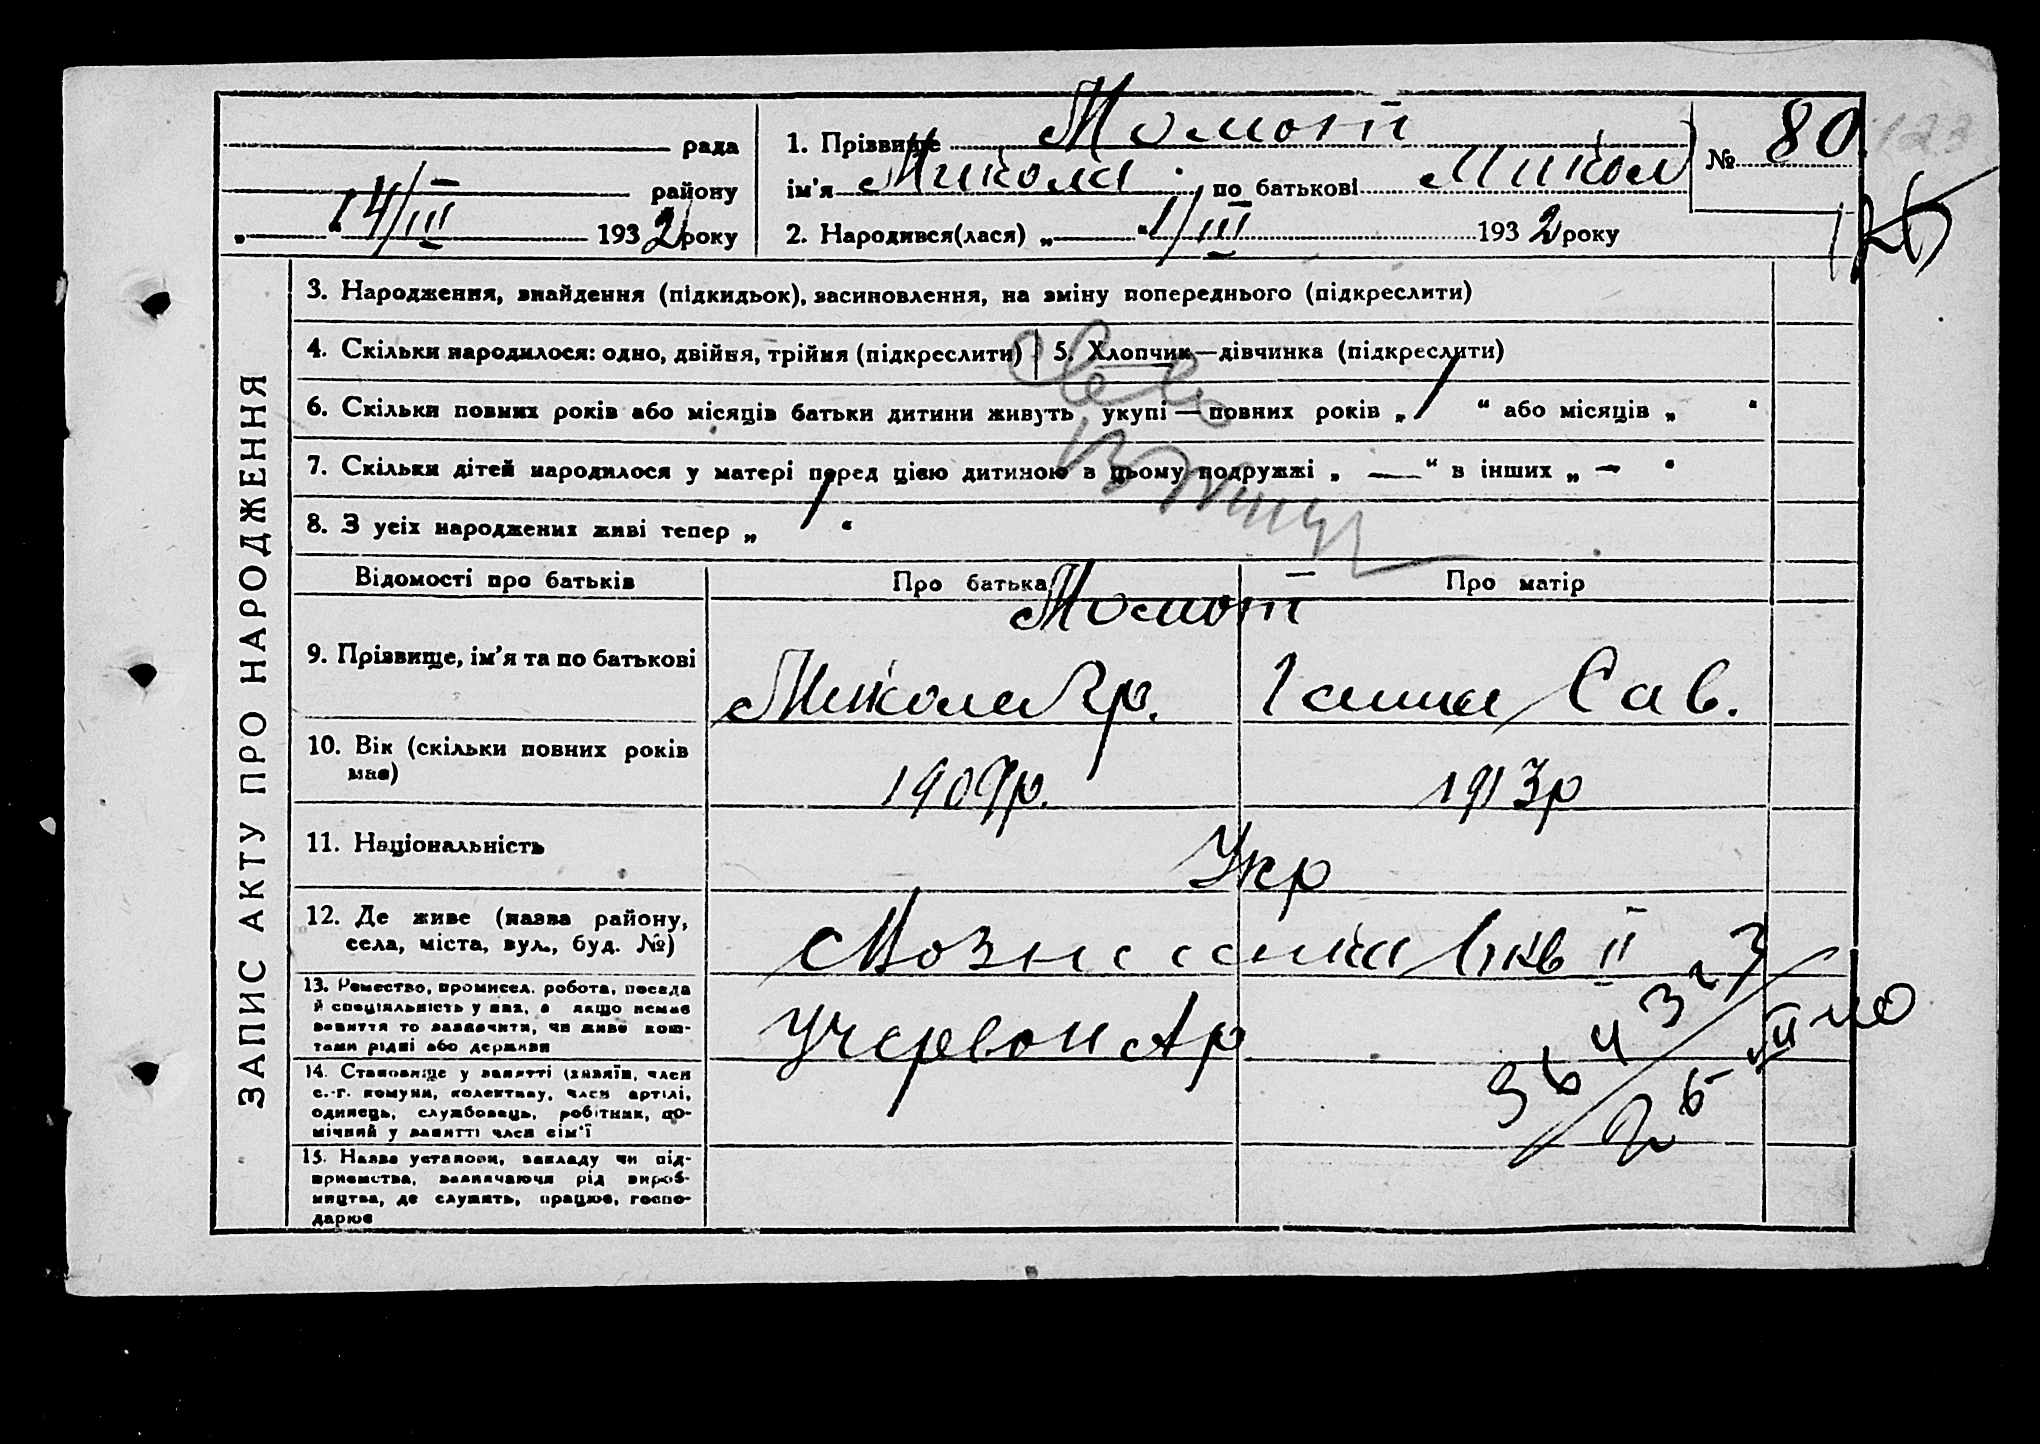 рада
району
„ “ 14/III 1932 року
1. Прізвище Момот
ім’я Микола по батькові Микол
2. Народився(лася) „ “ 1/III 1932 року
№ 80
123
ЗАПИС АКТУ ПРО НАРОДЖЕННЯ
3. Народження, знайдення (підкидьок), засиновлення, на зміну попереднього (підкреслити)
4. Скільки народилося: одно, двійня, трійня (підкреслити) 5. Хлопчик—дівчинка (підкреслити)
6. Скільки повних років або місяців батьки дитини живуть укупі — повних років „ 1 “ або місяців „ “
7. Скільки дітей народилося у матері перед цією дитиною в цьому подружжі „ — “ в інших „ — “
8. З усіх народжених живі тепер „ 1 “
Відомості про батьків Про батька Про матір
Момот
9. Прізвище, ім’я та по батькові Микола Гр. Ганна Сав.
10. Вік (скільки повних років має) 1909р. 1913р
11. Національність Укр
12. Де живе (назва району,
села, міста, вул., буд. №)
Вознесенка
13. Ремество, промисел, робота, посада
й спеціяльність у них, а якщо немає
заняття то зазначити, чи живе кош-
тами рідні або держави
У червон Ар
14. Становище у занятті (хазяїн, член
с.-г. комуни, колективу, член артілі,
одинець, службовець, робітник, до-
мічний у занятті член сім’ї
15. Назва установи, закладу чи під-
приємства, зазначаючи рід вироб-
ництва, де служить, працює, госпо-
дарює